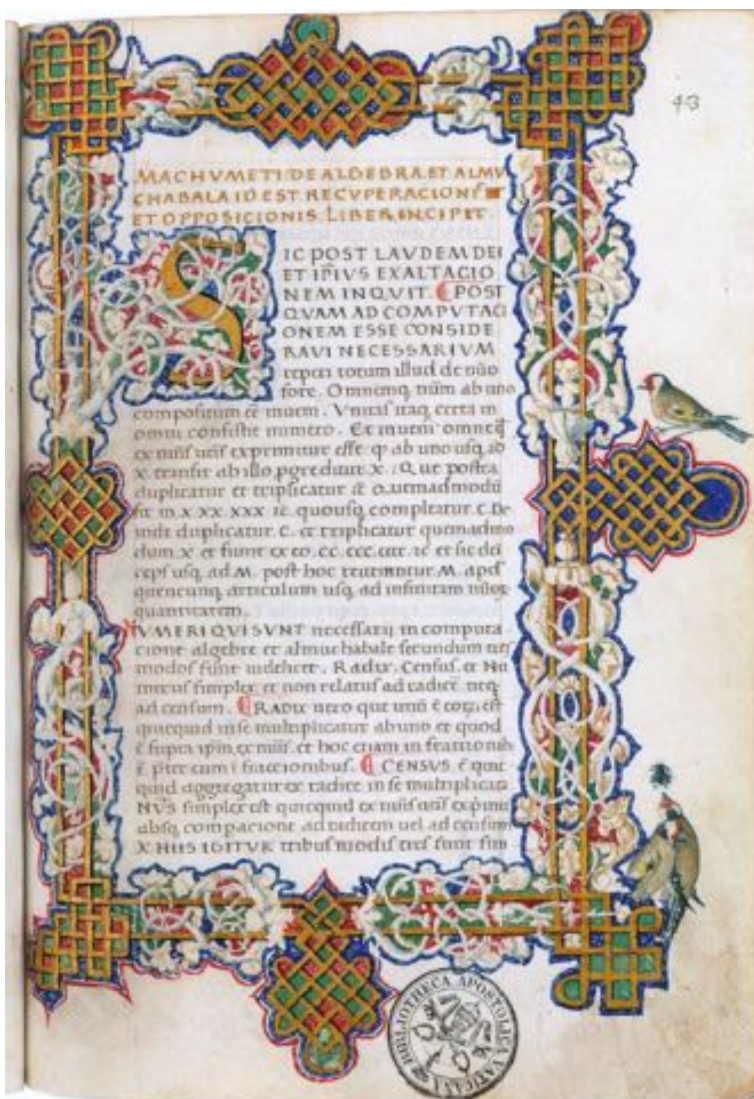 43
MACHVMETI DE ALGEBRA ET ALMV
CHABALA ID EST RECVPERACIONĒ
ET OPPOSICIONIS LIBER INCIPIT.
SIC POST LAVDEM DEI
ET IP̄IVS EXALTACIO
NEM INQVIT. POST
QVAM AD COMPVTACI
ONEM ESSE CONSIDE
RAVI NECESSARIVM
reperi totum illud de nūo
fore. Omnemq; nūm ab uno
compositum eē inueni. Vnitas itaq; certa in
omni consistit numero. Et inueni omnē
ex esse ab uno usq; ad
X. transit ab illo X. Que postea
duplicatur et triplicatur
fit in X XX. XXX quousq; compleatur C. De
inde duplicatur C. et triplicatur quemadmo
dum X et fiunt ex eo. CC. CCC. et sic dei
ceps usq; ad M. post hoc M. apd
quencunq; articulum usq; ad infinitam
quantitatem.
NVMERI QVI SVNT necessarii in computa
cione algebre et almuchabale secundum tres
modos sunt Radix. Census. et Nu
merus simplex et non relatus ad radicē neq;
ad censum. RADIX uero que
quicquid in se multiplicatur ab uno et quod
ē supra et hoc etiam in
cum fraccionibus. CENSUS ē quic
quid aggregatur ex radice in se multiplicata
NVS simplex est quicquid ex
absq; ad radicem uel ad censum
X HIIS IGITUR tribus modis tres sunt
BIBLIOTHECA APOSTOLICA VATICANA